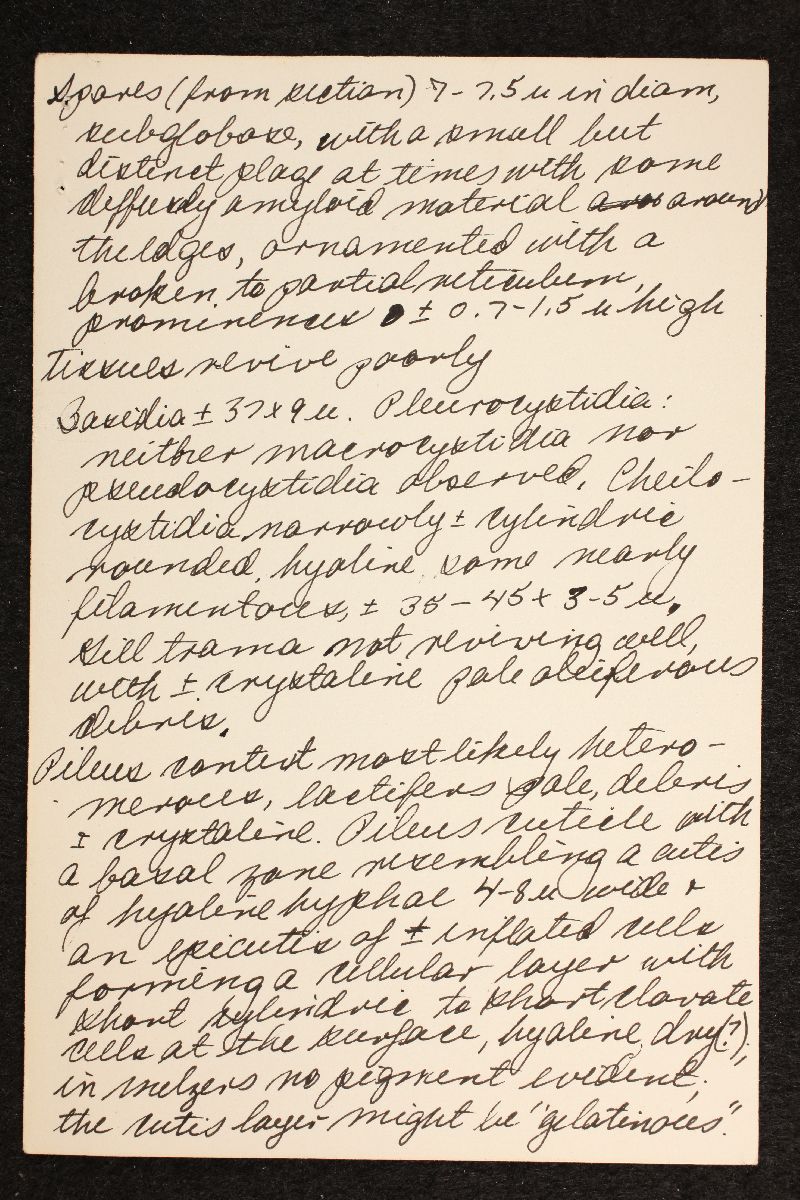 Spores (from section) 7-7.5 u in diam,
subglobose, with a small but
distinct plage at times with some
diffusely amyloid material around
the edges, ornamented with a
broken to partial reticulum,
prominences ± 0.7-1.5 u high
Tissues revive poorly
Basidia ± 37 x 9 u. Pleurocystidia:
neither macrocystidia nor
pseudocystidia observed. Cheilo-
cystidia narrowly ± cylindric
rounded, hyaline, some nearly
filamentous, ± 35-45 x 3-5 u.
Gill trama not reviving well,
with ± crystaline pale oleiferous
debris.
Pileus context most likely hetero-
merous, lactifers pale, debris
± crystaline. Pileus cuticle with
a basal zone resembling a cutis
of hyaline hyphae 4-8 u wide &
an epicutis of ± inflated cells
forming a cellular layer with
short cylindric to short clavate
cells at the surface, hyaline, dry(?),
in Melzers no pigment evident;
the cutis layer might be "gelatinous".